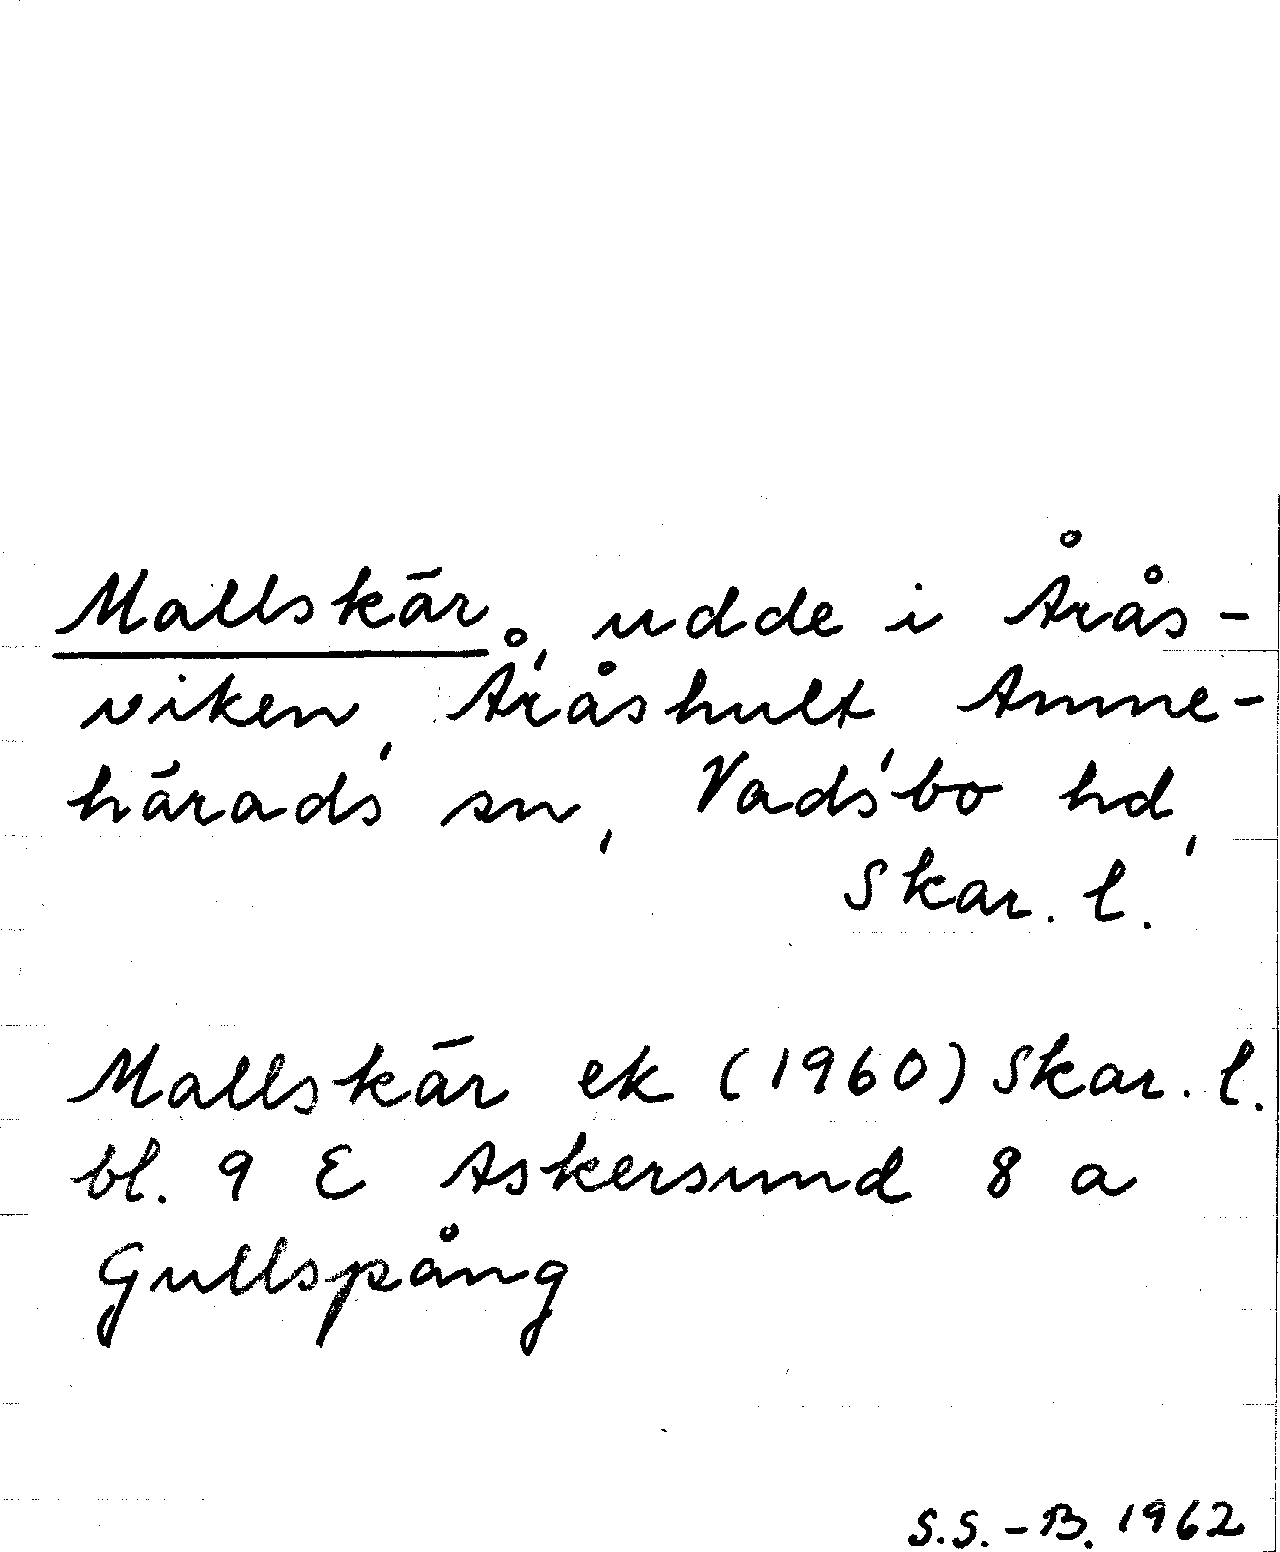 Mallskär, udde i Årås-
viken, Åråshult, Amne-
härads sn, Vadsbo hd,
Skar. l.
Mallskär ek (1960) Skar. l.
bl. 9 E Askersund 8 a
Gullspång
S.S.-B. 1962